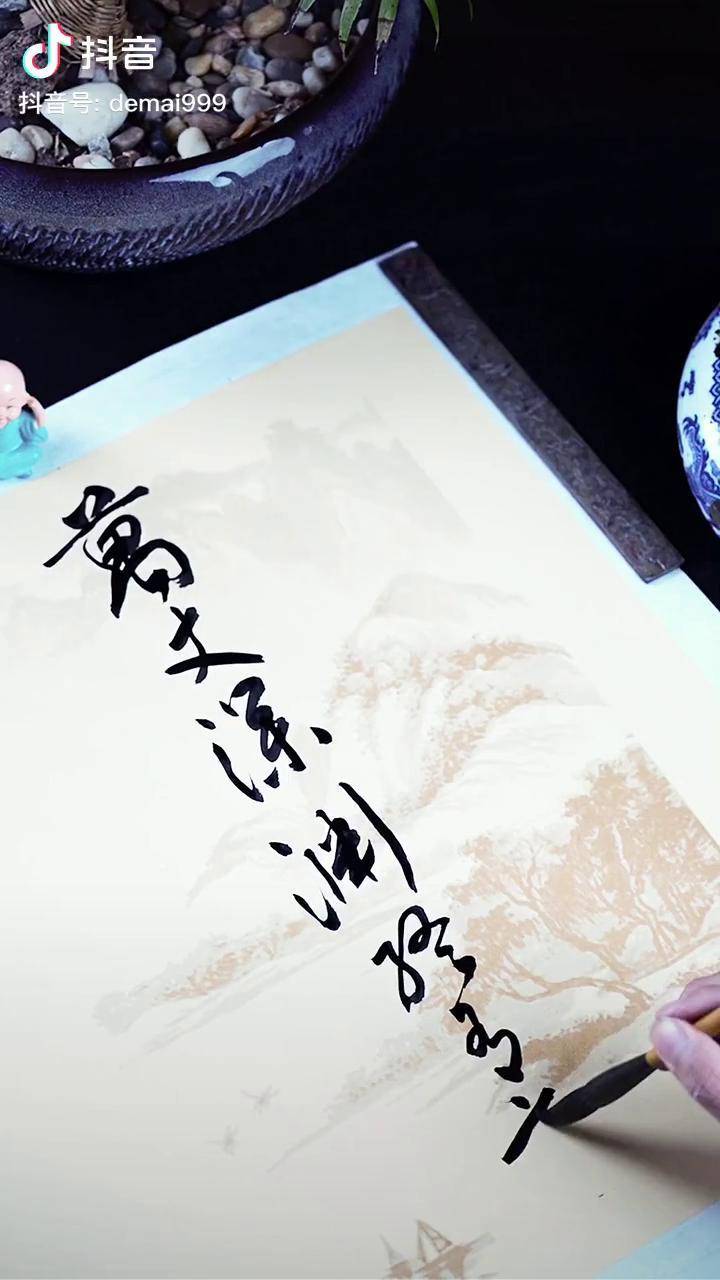 抖音
抖音号: demai999
萬丈深渊终有